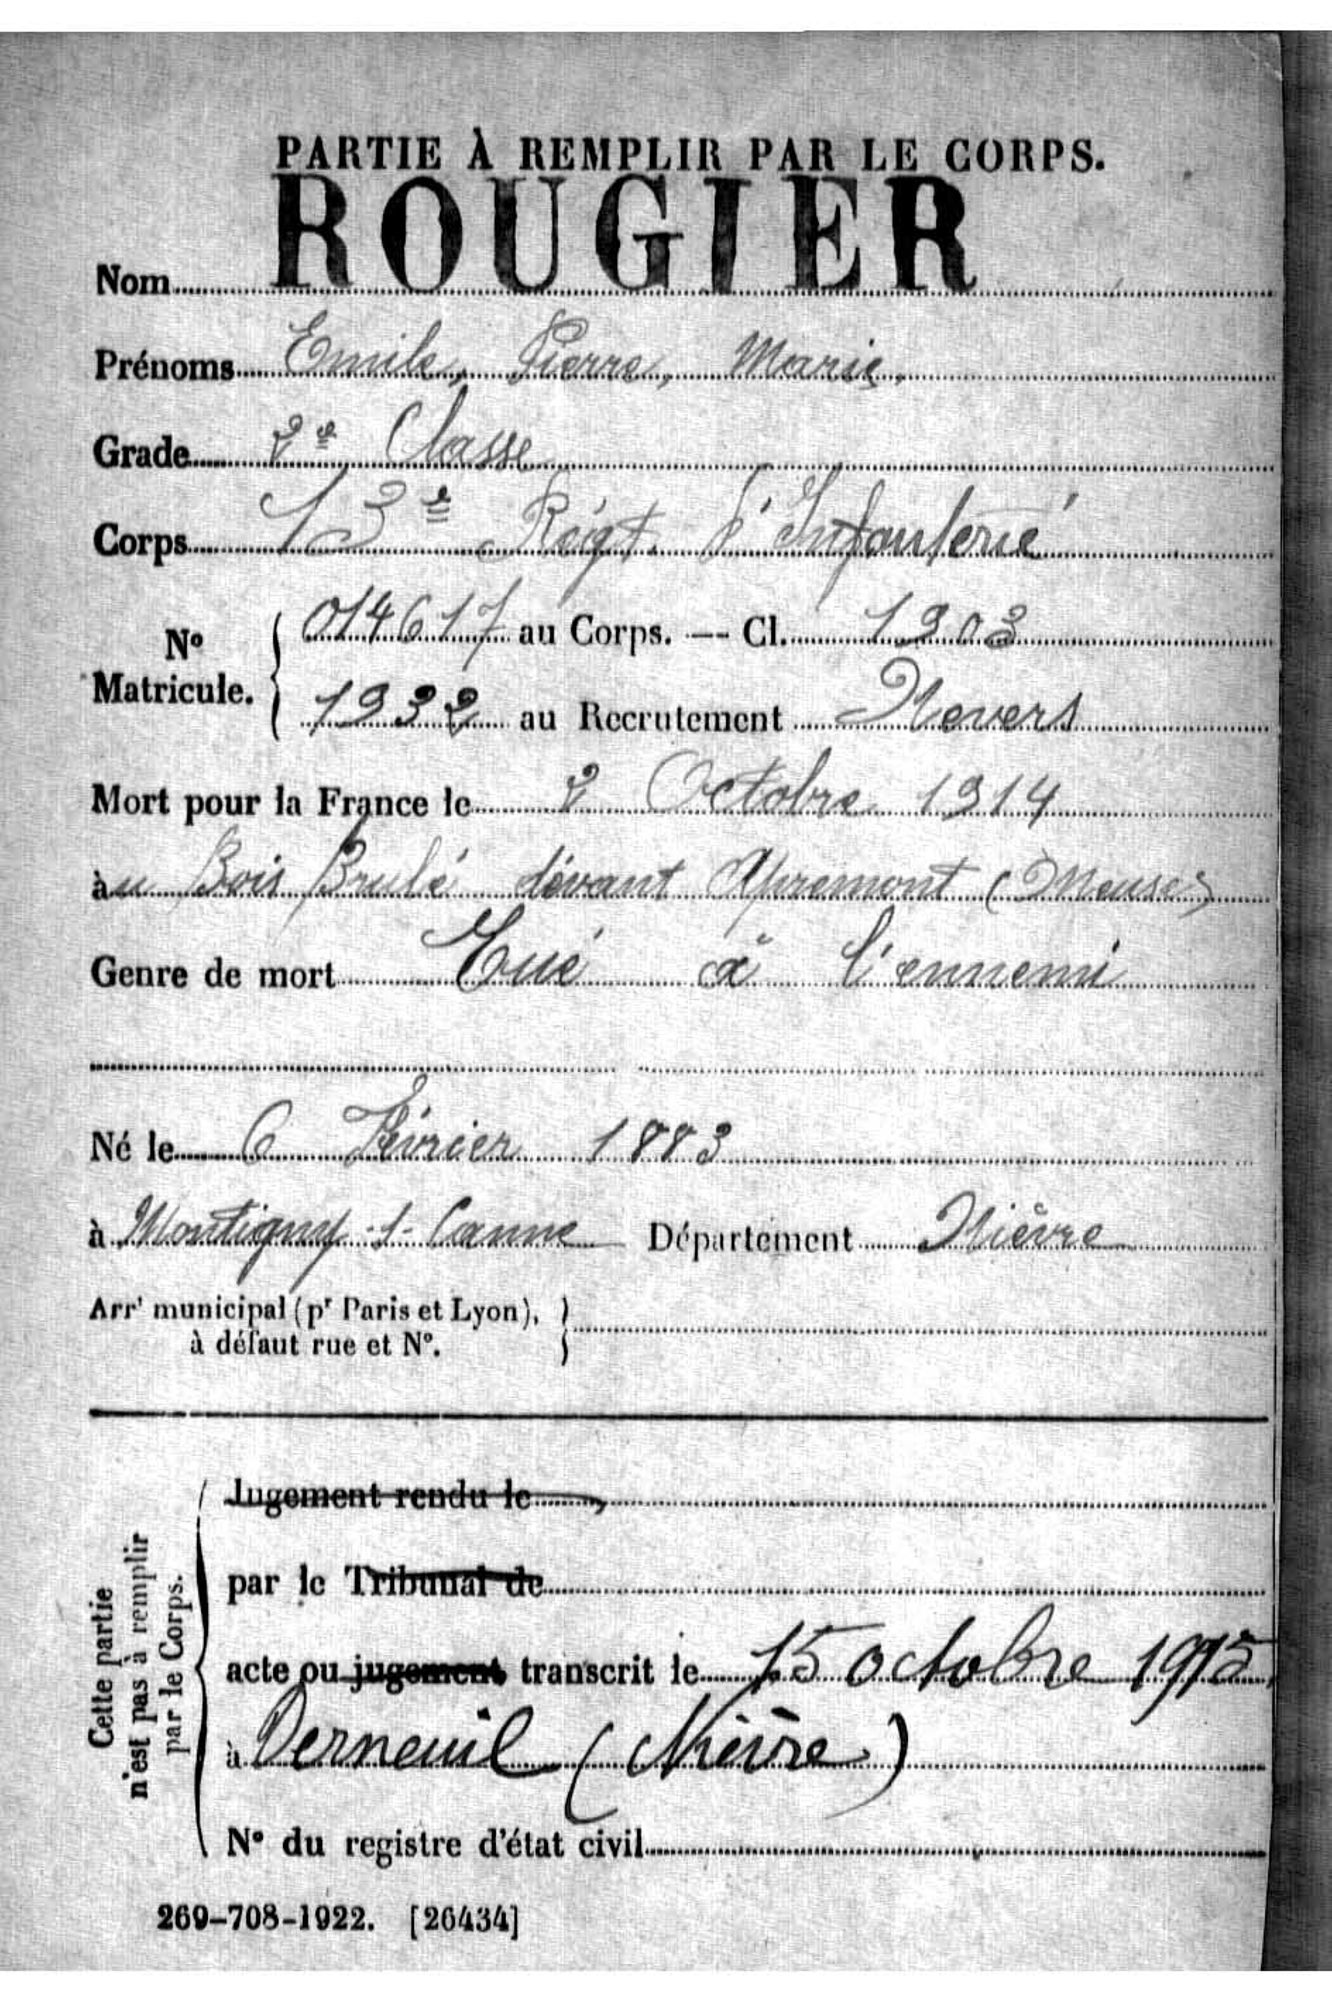 PARTIE À REMPLIR PAR LE CORPS.
Nom ROUGIER
Prénoms Emile, Pierre, Marie.
Grade 2e Classe
Corps 13e Régt d'Infanterie
No Matricule. 014617 au Corps. — Cl. 1903
1932 au Recrutement Nevers
Mort pour la France le 2 Octobre 1914
à u Bois Brulé devant Apremont (Meuse)
Genre de mort Tué à l'ennemi
Né le 6 Février 1883
à Montigny-s-Canne Département Nièvre
Arrt municipal (pr Paris et Lyon),
à défaut rue et No.
Cette partie
n'est pas à remplir
par le Corps.
Jugement rendu le
par le Tribunal de
acte ou jugement transcrit le 15 octobre 1915
à Verneuil (Nièvre)
No du registre d'état civil
269-708-1922. [26434]